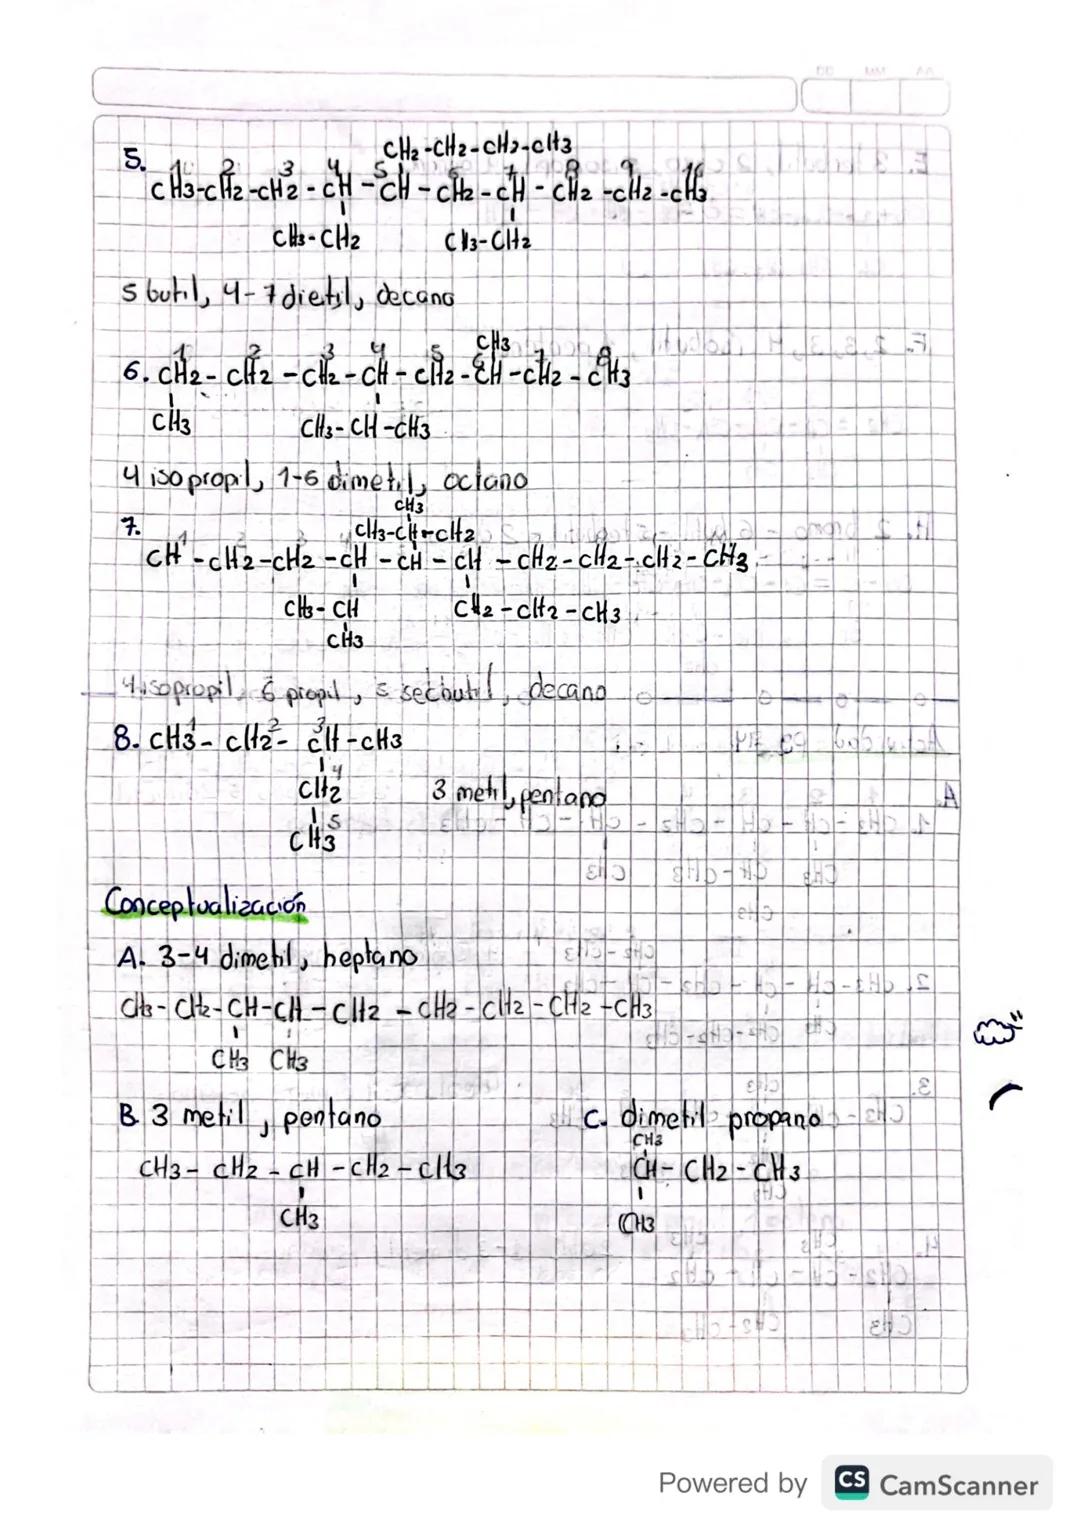 DD MM AA
5. CH2-CH2-CH2-CH3
1 2 3 4 5 6 7 8 9 10
CH3-CH2-CH2-CH-CH-CH2-CH-CH2-CH2-CH3
CH3-CH2 CH3-CH2
5 butil, 4-7 dietil, decano
CH3
1 2 3 4 5 6 7 8
6. CH2-CH2-CH2-CH-CH2-CH-CH2-CH3
CH3 CH3-CH-CH3
4 isopropil, 1-6 dimetil, octano
CH3
7. CH3-CH-CH2
CH-CH2-CH2-CH-CH-CH-CH2-CH2-CH2-CH3
CH3-CH CH2-CH2-CH3
CH3
4 isopropil, 6 propil, 5 secbutil, decano
1 2 3
8. CH3-CH2-CH-CH3
4
CH2 3 metil, pentano
5
CH3
Conceptualización
A. 3-4 dimetil, heptano
CH3-CH2-CH-CH-CH2-CH2-CH2-CH2-CH3
CH3 CH3
B. 3 metil, pentano C. dimetil propano
CH3
CH3-CH2-CH-CH2-CH3 CH-CH2-CH3
CH3 CH3
Powered by CS CamScanner